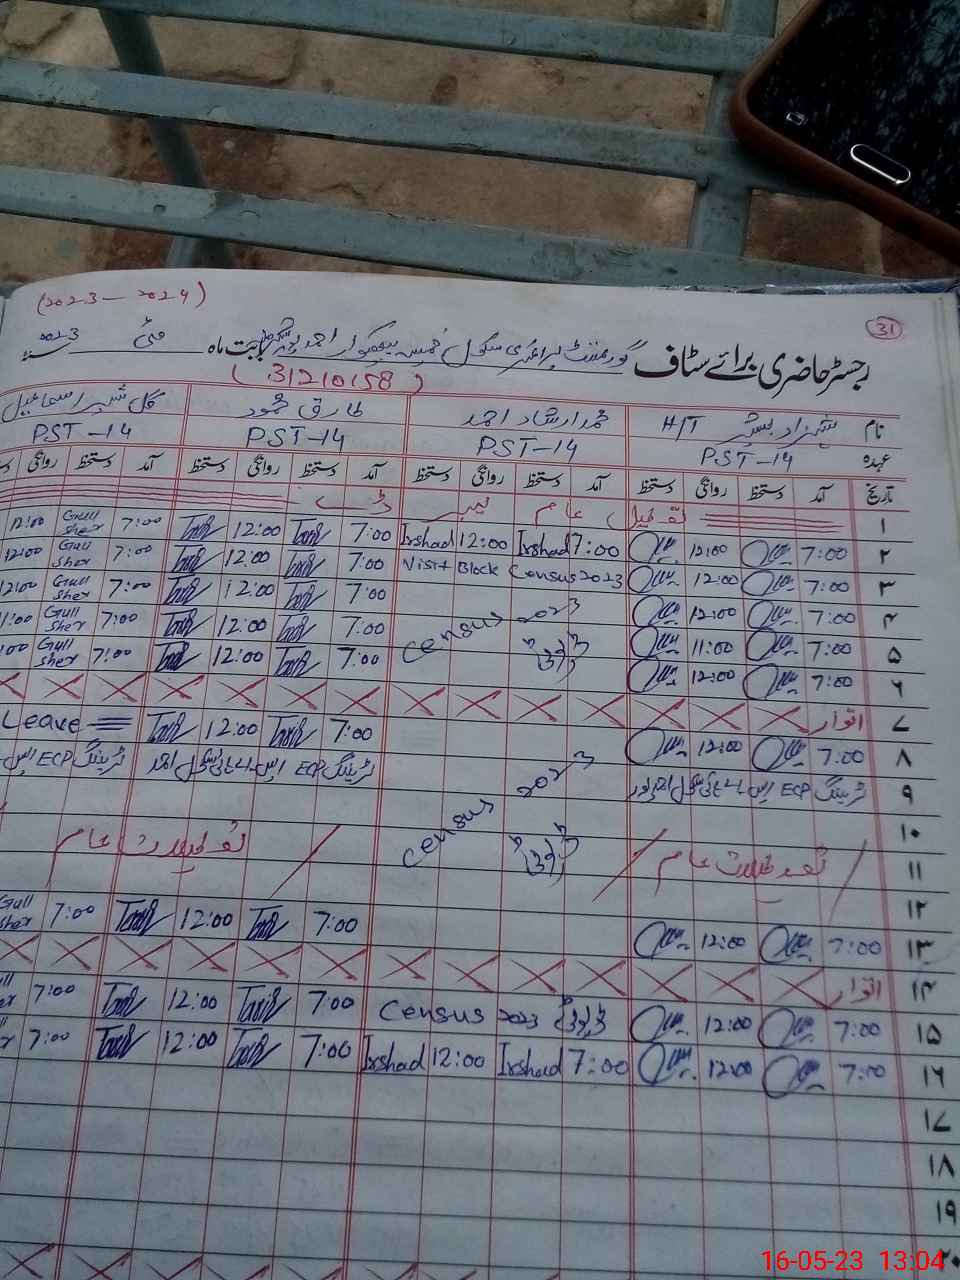 (2023-2024)
31
رجسٹر حاضری برائے سٹاف گورنمنٹ پرائمری سکول احمد پور بابت ماہ مئی 2023
(31210158)
نام شہزاد بشیر H/T محمد ارشاد احمد طارق محمود گل شیر اسماعیل
عہدہ PST-14 PST-14 PST-14 PST-14
تاریخ آمد دستخط روانگی دستخط آمد دستخط روانگی دستخط آمد دستخط روانگی دستخط آمد دستخط روانگی
۱ تعطیل عام لیبر ڈے
۲ 7:00 12:00 7:00 Irshad 12:00 Irshad 7:00 Tariq 12:00 Tariq 7:00 Gull sher 12:00
۳ 7:00 12:00 Visit Block Census 2023 7:00 Tariq 12:00 Tariq 7:00 Gull sher 12:00
۴ 7:00 12:00 Census 2023 7:00 Tariq 12:00 Tariq 7:00 Gull sher 12:00
۵ 7:00 11:00 7:00 Tariq 12:00 Tariq 7:00 Gull sher 11:00
۶ 7:00 12:00 7:00 Tariq 12:00 Tariq 7:00 Gull sher :00
۷ اتوار
۸ 7:00 12:00 7:00 Tariq 12:00 Tariq Leave
۹ ٹریننگ ECP ایس اے ہائی سکول احمد پور ٹریننگ ECP ایس اے ہائی سکول احمد ٹریننگ ECP ایس
۱۰ Census 2023
۱۱ تعطیلات عام تعطیلات عام
۱۲
۱۳ 7:00 12:00 7:00 Tariq 12:00 Tariq 7:00 Gull sher
۱۴ اتوار
۱۵ 7:00 12:00 Census 2023 7:00 Tariq 12:00 Tariq 7:00
۱۶ 7:00 12:00 7:00 Irshad 12:00 Irshad 7:00 Tariq 12:00 Tariq 7:00
۱۷
۱۸
۱۹
۲۰
16-05-23 13:04